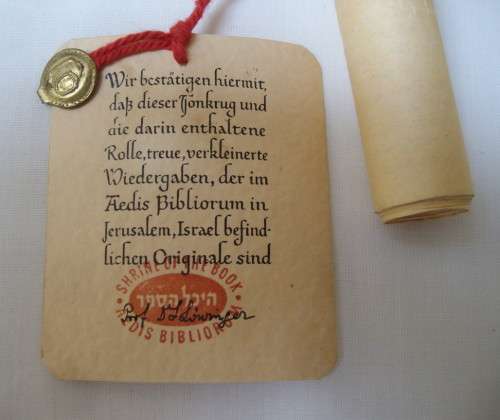 Wir bestätigen hiermit,
daß dieser Tonkrug und
die darin enthaltene
Rolle, treue, verkleinerte
Wiedergaben, der im
Aedis Bibliorum in
Jerusalem, Israel befind-
lichen Originale sind
• SHRINE OF THE BOOK •
היכל הספר
Prof.
AEDIS BIBLIORUM